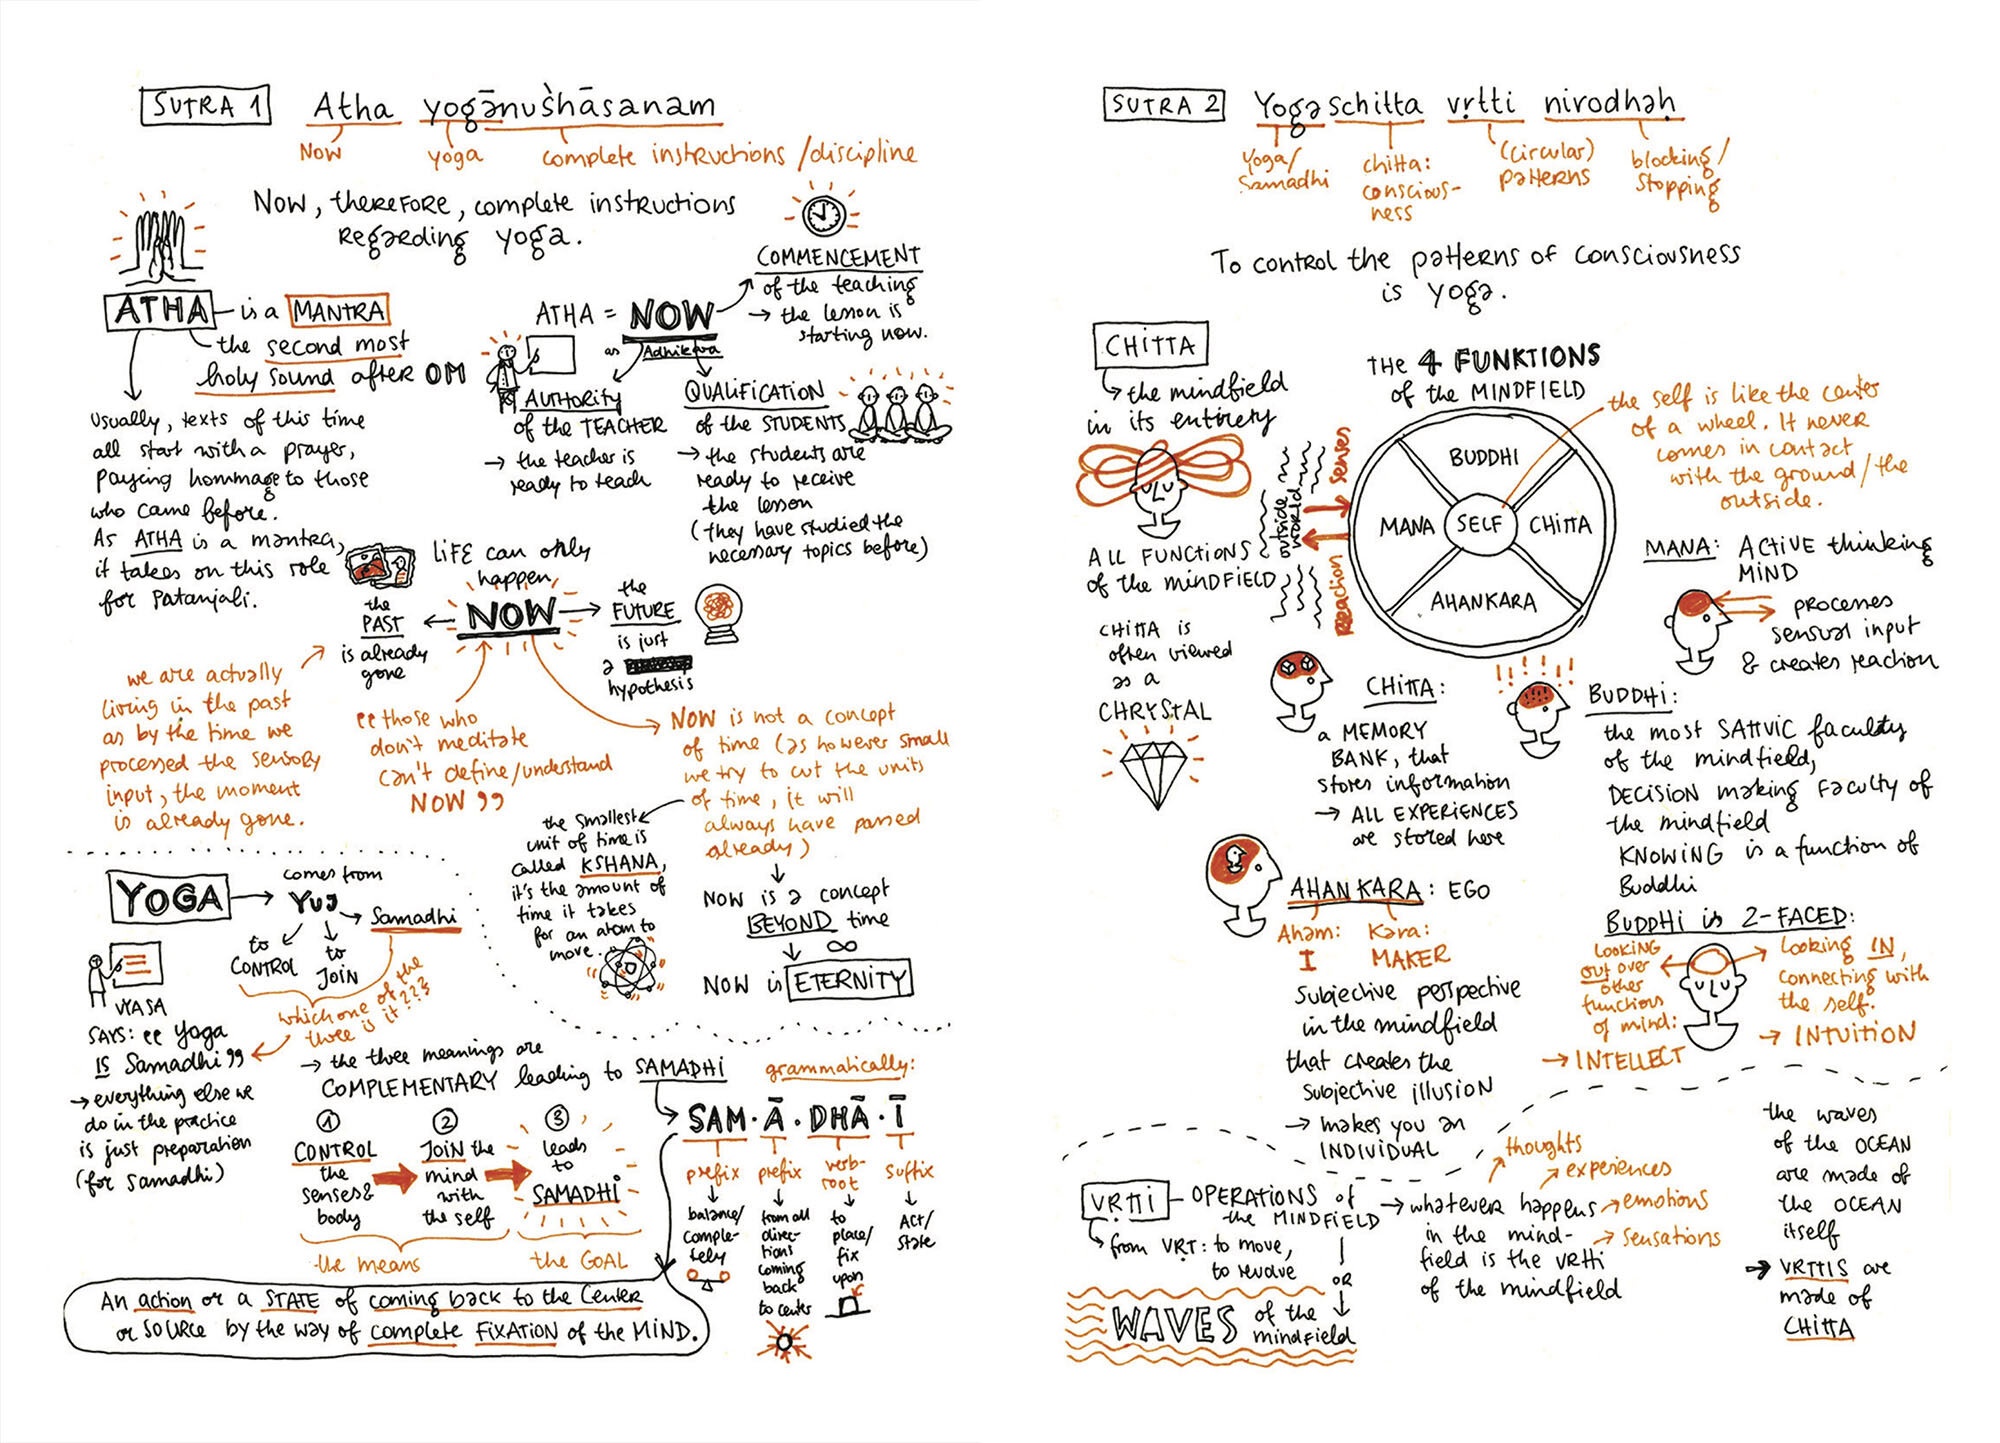 SUTRA 1
Atha yogānuśhāsanam
Now
yoga
complete instructions /discipline
Now, therefore, complete instructions
regarding yoga.
ATHA
is a MANTRA
the second most
holy sound after OM
Usually, texts of this time
all start with a prayer,
paying hommage to those
who came before.
As ATHA is a mantra,
it takes on this role
for Patanjali.
ATHA = NOW
as Adhikara
COMMENCEMENT
of the teaching
→ the lesson is
starting now.
AUTHORITY
of the TEACHER
→ the teacher is
ready to teach
QUALIFICATION
of the STUDENTS
→ the students are
ready to receive
the lesson
(they have studied the
necessary topics before)
LIFE can only
happen
NOW
the
PAST
is already
gone
the
FUTURE
is just
a
hypothesis
we are actually
living in the past
as by the time we
processed the sensory
input, the moment
is already gone.
"those who
don't meditate
can't define/understand
NOW"
NOW is not a concept
of time (as however small
we try to cut the units
of time, it will
always have passed
already)
the smallest
unit of time is
called KSHANA,
it's the amount of
time it takes
for an atom to
move.
NOW is a concept
BEYOND time
∞
NOW is ETERNITY
YOGA
comes from
Yuj
to
CONTROL
to
JOIN
Samadhi
which one of the
three is it???
VYASA
SAYS: "Yoga
IS Samadhi"
→ everything else we
do in the practice
is just preparation
(for Samadhi)
→ the three meanings are
COMPLEMENTARY leading to SAMADHI
1
CONTROL
the
senses &
body
2
JOIN the
mind
with
the self
3
leads
to
SAMADHI
the means
the GOAL
grammatically:
SAM · Ā · DHĀ · Ī
prefix
balance/
comple-
tely
prefix
from all
direc-
tions
coming
back
to center
verb-
root
to
place/
fix
upon
suffix
Act/
State
An action or a STATE of coming back to the Center
or SOURCE by the way of complete FIXATION of the MIND.
SUTRA 2
Yogaschitta vṛtti nirodhaḥ
Yoga/
Samadhi
chitta:
conscious-
ness
(circular)
patterns
blocking/
stopping
To control the patterns of consciousness
is yoga.
CHITTA
the mindfield
in its entirety
ALL FUNCTIONS
of the MINDFIELD
CHITTA is
often viewed
as a
CHRYSTAL
THE 4 FUNKTIONS
of the MINDFIELD
outside
world
Senses
Reaction
BUDDHI
MANA
SELF
CHITTA
AHANKARA
the self is like the center
of a wheel. It never
comes in contact
with the ground/the
outside.
MANA: ACTIVE thinking
MIND
processes
sensual input
& creates reaction
CHITTA:
a MEMORY
BANK, that
stores information
→ ALL EXPERIENCES
are stored here
BUDDHI:
the most SATTVIC faculty
of the mindfield,
DECISION making Faculty of
the mindfield
KNOWING is a function of
Buddhi
AHANKARA: EGO
Aham:
I
Kara:
MAKER
Subjective perspective
in the mindfield
that creates the
subjective illusion
→ makes you an
INDIVIDUAL
BUDDHI is 2-FACED:
LOOKING
out over
other
functions
of mind:
→ INTELLECT
Looking IN,
connecting with
the self.
→ INTUITION
VRTTI
OPERATIONS of
the MINDFIELD
from VṚT: to move,
to revolve
OR
WAVES of the
mindfield
→ whatever happens
in the mind-
field is the vrtti
of the mindfield
thoughts
experiences
emotions
sensations
the waves
of the OCEAN
are made of
the OCEAN
itself
→ VRTTIS are
made of
CHITTA